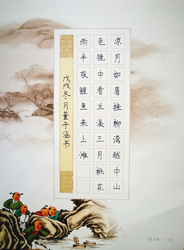 凉月如眉挂柳湾越中山
色镜中看兰溪三月桃花
雨半夜鲤鱼来上滩
戊戌冬月董子涵书